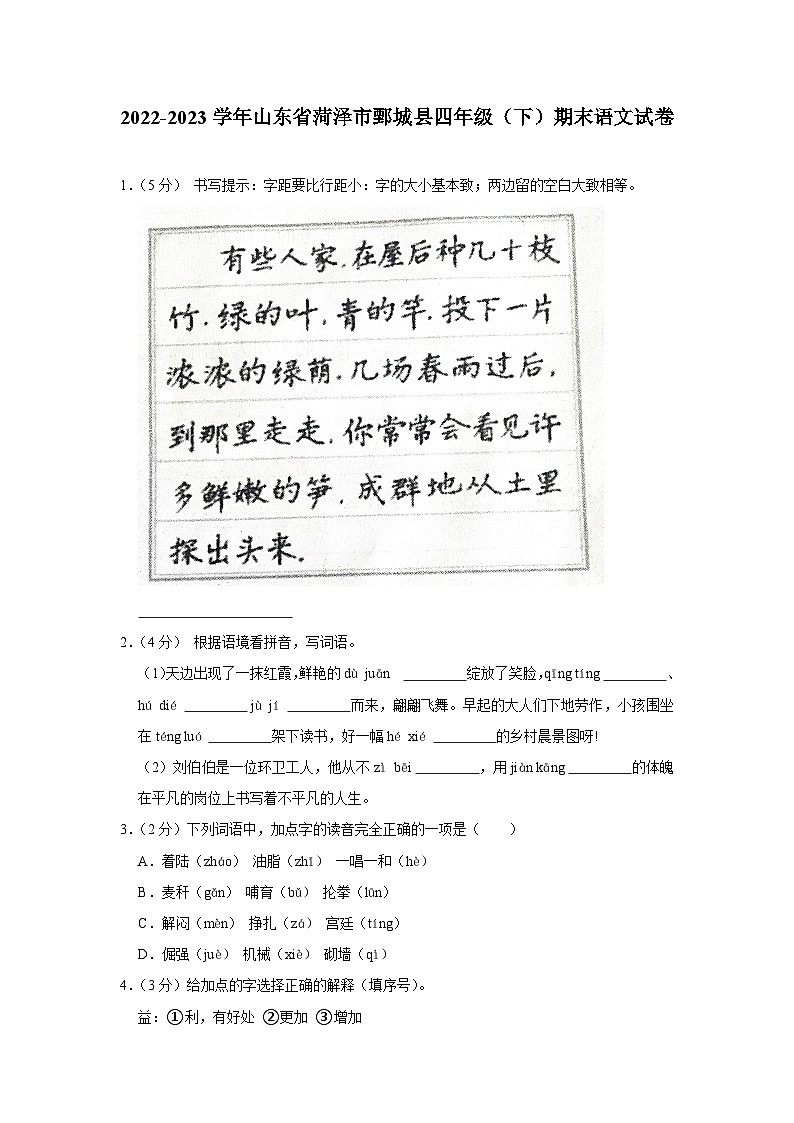 2022-2023 学年山东省菏泽市鄄城县四年级（下）期末语文试卷
1.（5 分） 书写提示：字距要比行距小：字的大小基本致；两边留的空白大致相等。
有些人家，在屋后种几十枝
竹，绿的叶，青的竿，投下一片
浓浓的绿荫。几场春雨过后，
到那里走走，你常常会看见许
多鲜嫩的笋，成群地从土里
探出头来。
2.（4 分） 根据语境看拼音，写词语。
（1）天边出现了一抹红霞，鲜艳的 dù juān ________绽放了笑脸，qīng tíng ________、
hú dié ________ jù jí ________而来，翩翩飞舞。早起的大人们下地劳作，小孩围坐
在 téng luó ________架下读书，好一幅 hé xié ________的乡村晨景图呀！
（2）刘伯伯是一位环卫工人，他从不 zì bēi ________，用 jiàn kāng ________的体魄
在平凡的岗位上书写着不平凡的人生。
3.（2 分）下列词语中，加点字的读音完全正确的一项是（　　）
A．着陆（zháo） 油脂（zhī） 一唱一和（hè）
B．麦秆（gǎn） 哺育（bǔ） 抡拳（lūn）
C．解闷（mèn） 挣扎（zá） 宫廷（tíng）
D．倔强（juè） 机械（xiè） 砌墙（qì）
4.（3 分）给加点的字选择正确的解释（填序号）。
益：①利，有好处 ②更加 ③增加